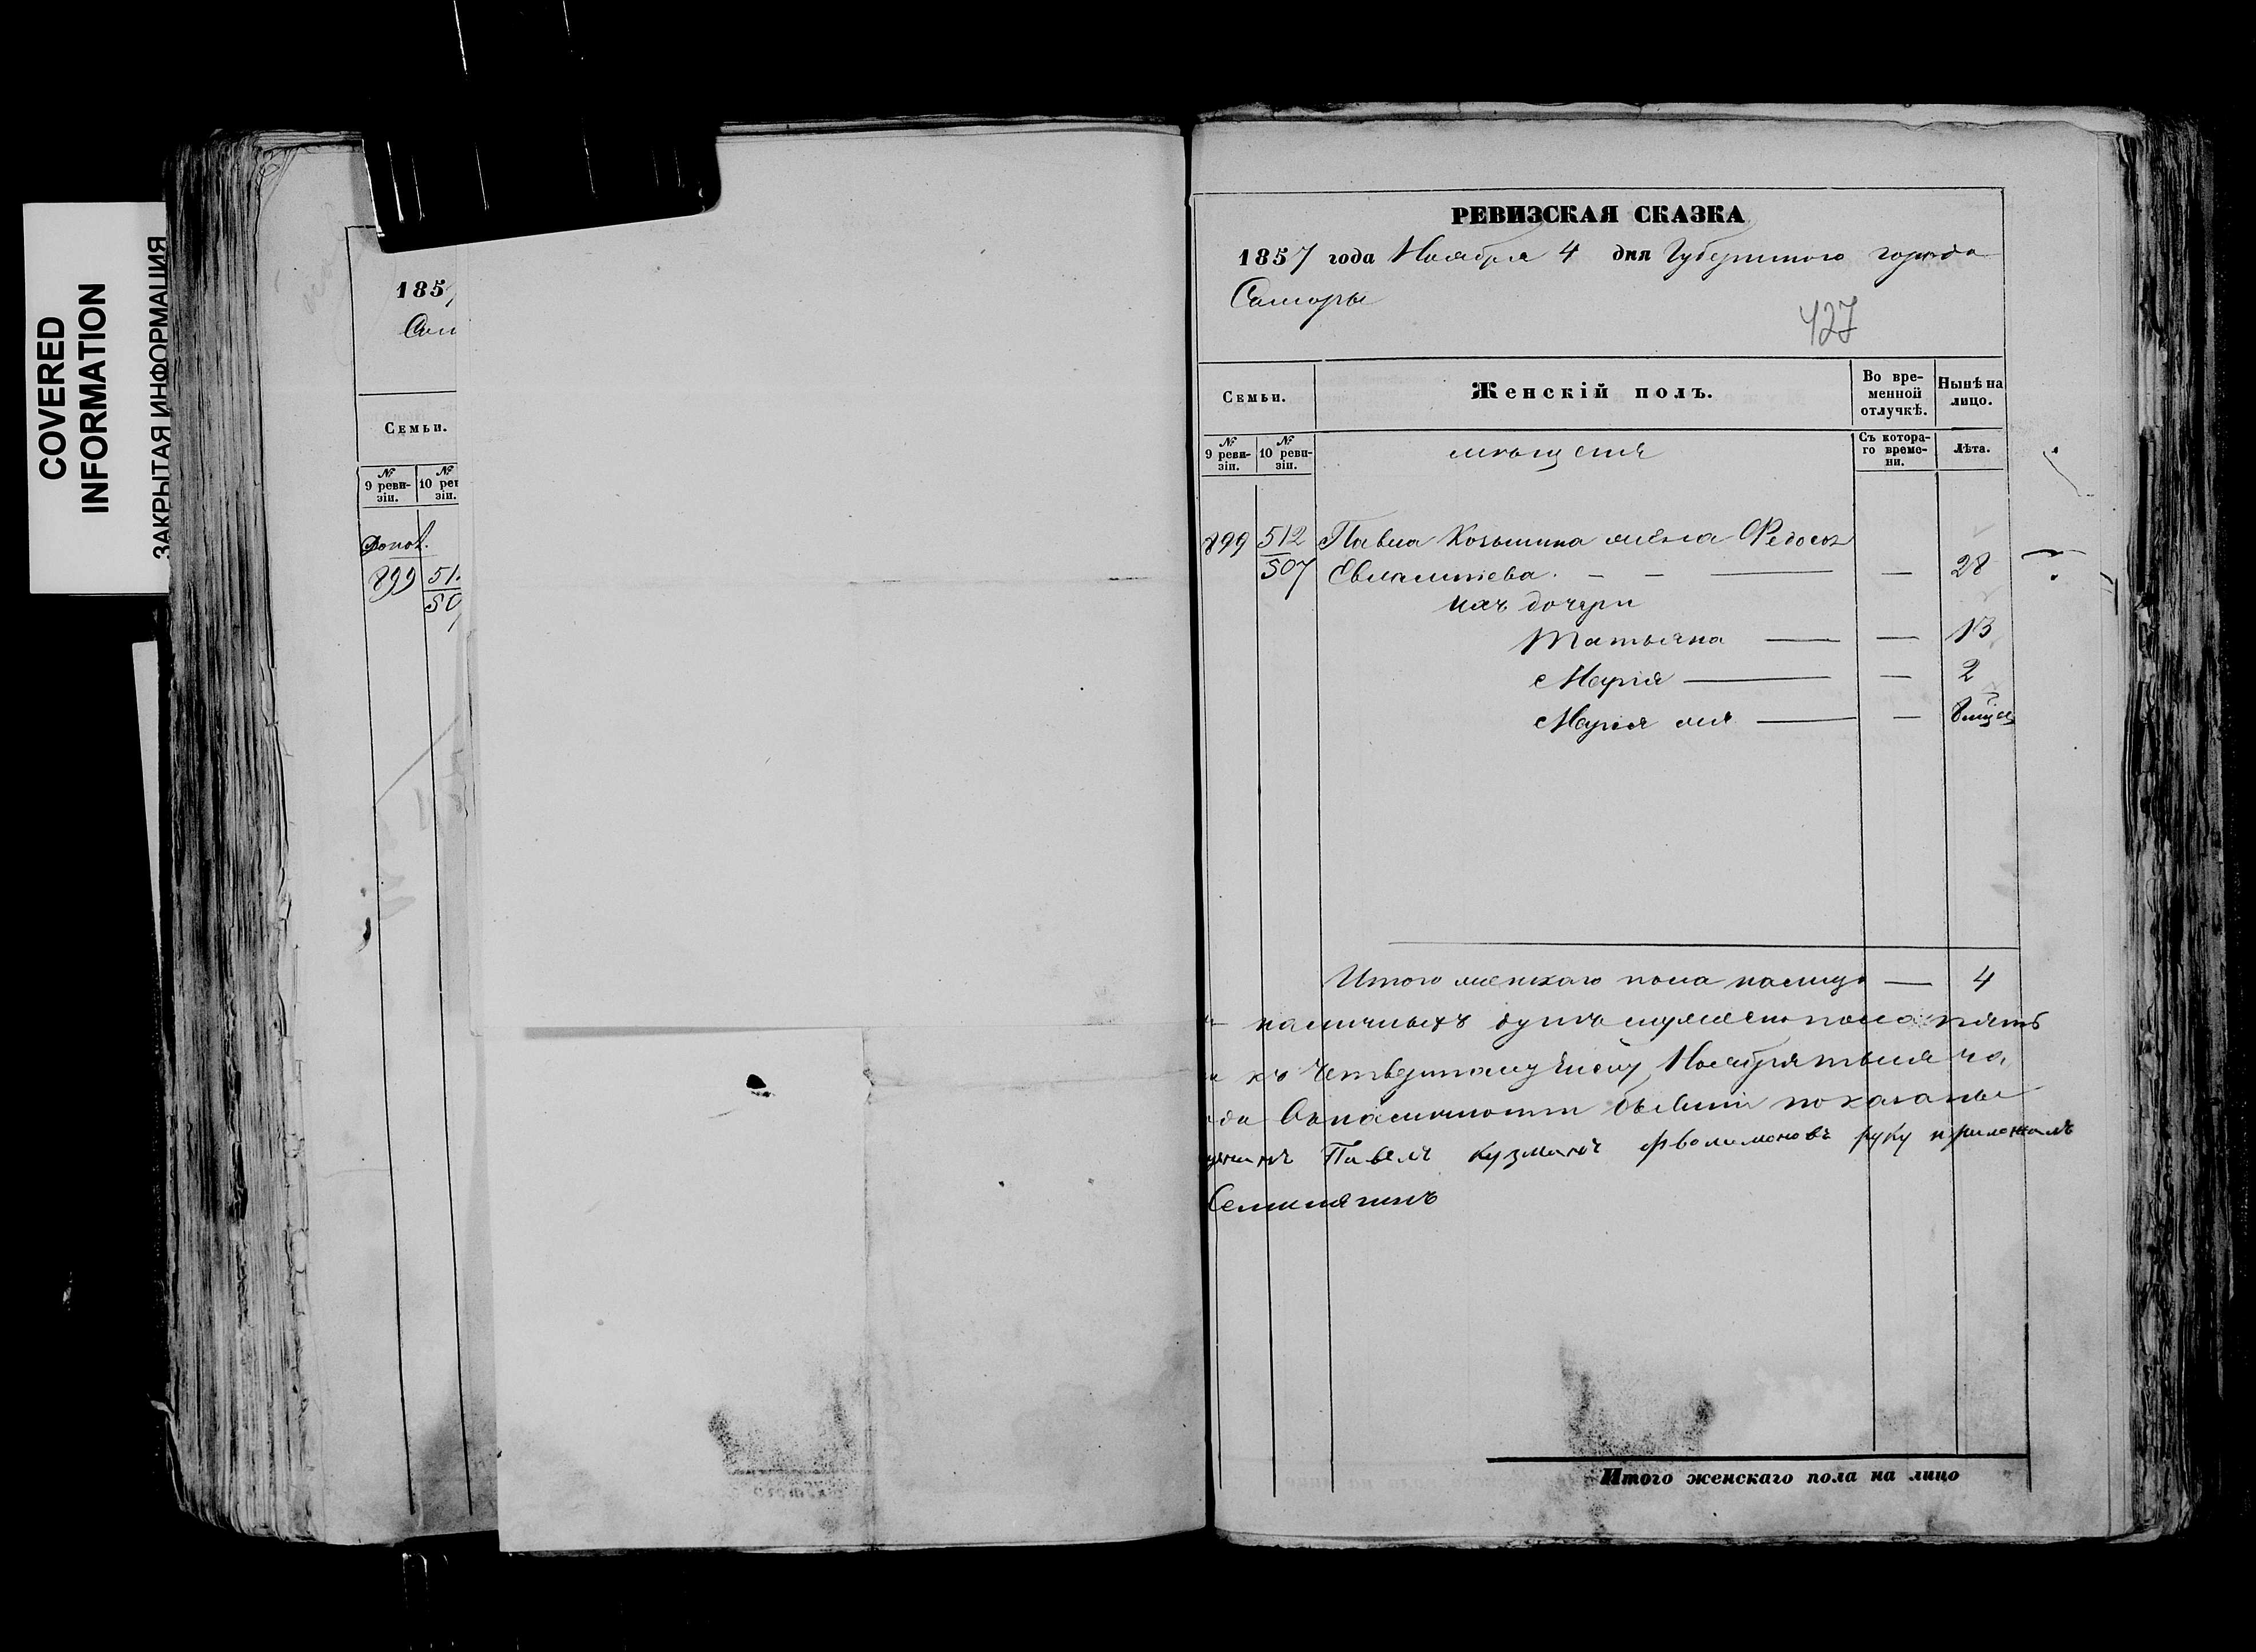 COVERED
INFORMATION
ЗАКРЫТАЯ ИНФОРМАЦИЯ
185
Сам
Семьи.
№ 9 ревизіи.
№ 10 рев зіи.
899
51
50
РЕВИЗСКАЯ СКАЗКА
1857 года Ноября 4 дня Губернского города
Самары
427
Семьи.
Женскій полъ.
Во временной отлучкѣ.
Нынѣ на лицо.
№ 9 ревизіи.
№ 10 ревизіи.
мѣщане
Съ котораго времени.
Лѣта.
899 512 Павла Козьмина жена Федосья
507 Евлампіева. — — — — 28
ихъ дочери
Татьяна — — 13
Марія — — 2
Марія жъ — —
Итого женскаго пола налицо — 4
наличныхъ душъ мужескаго пола пять
къ Четвертому числу Ноября тысяча
показаны
Павелъ Кузминъ руку приложилъ
Итого женскаго пола на лицо